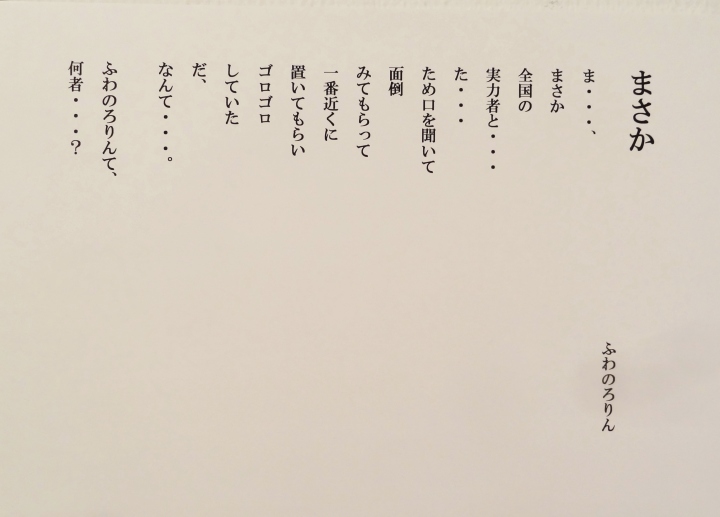 まさか
ふわのろりん
ま・・・、
まさか
全国の
実力者と・・・
た・・・
ため口を聞いて
面倒
みてもらって
一番近くに
置いてもらい
ゴロゴロ
していた
だ、
なんて・・・。
ふわのろりんて、
何者・・・？